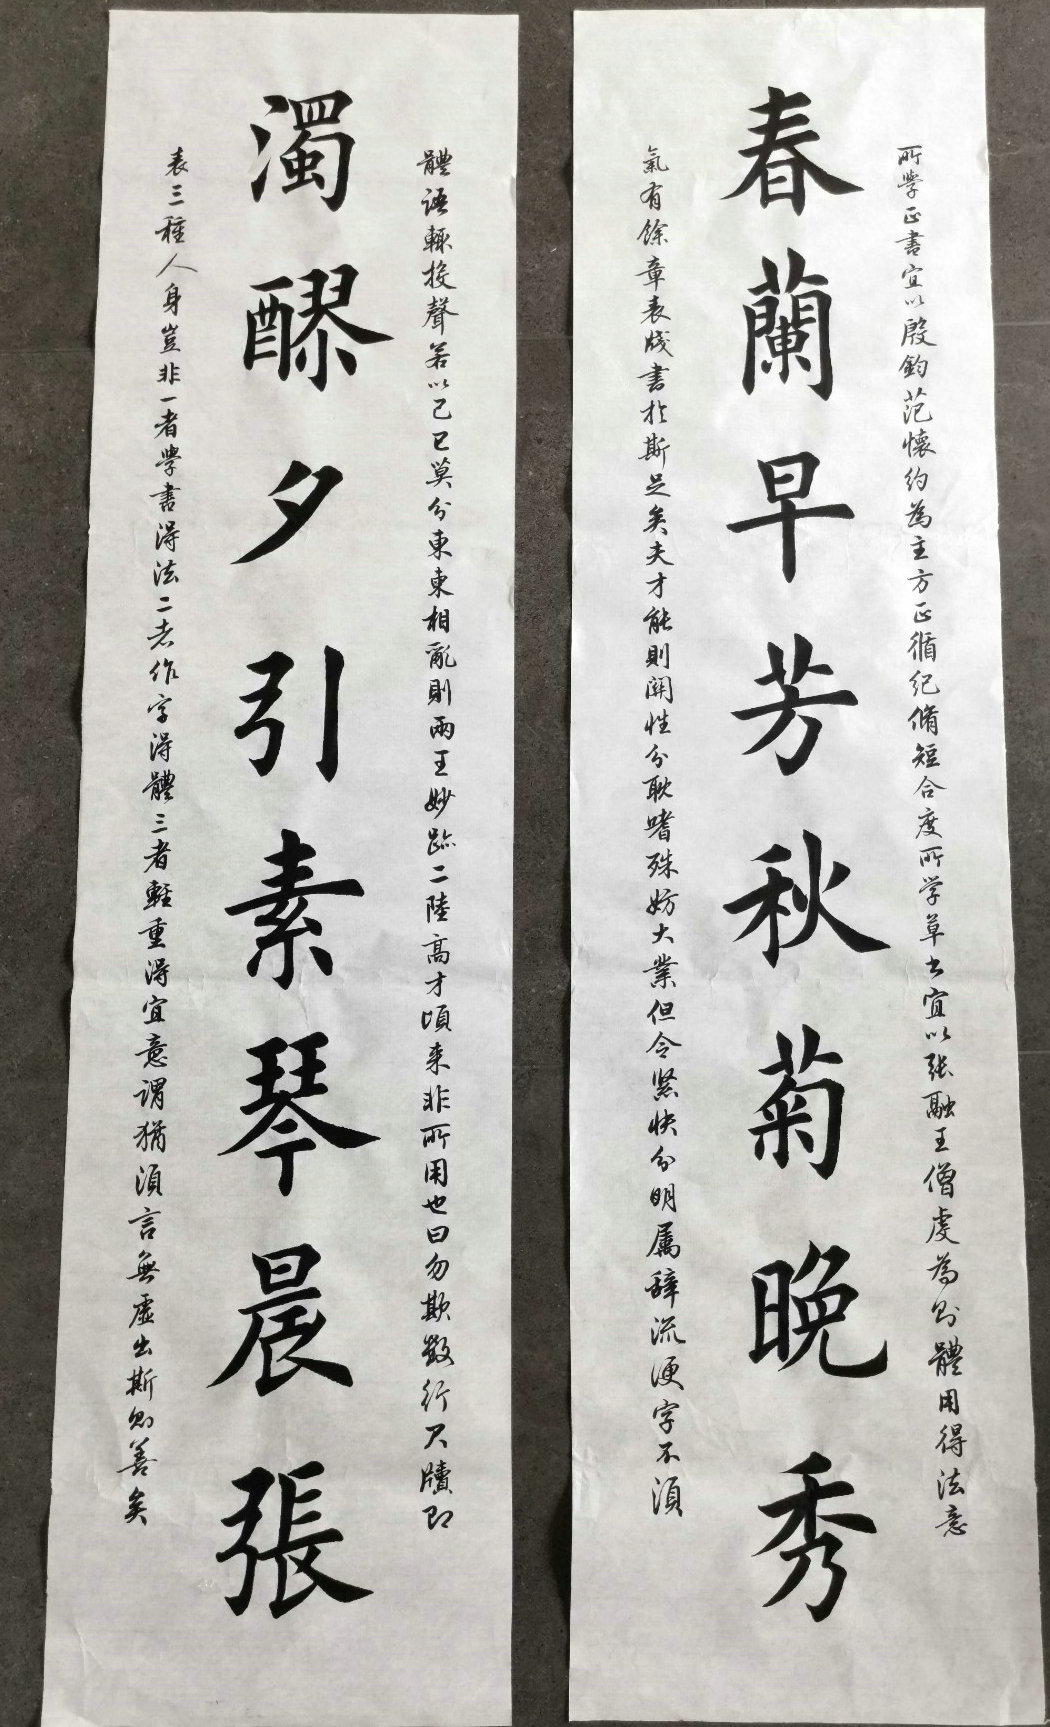 所學正書宜以殷鈞范懷約為主方正循紀脩短合度所学草書宜以張融王僧虔為則體用得法意
春蘭早芳秋菊晚秀
氣有餘章表牋書於斯足矣夫才能則關性分耽嗜殊妨大業但令緊快分明属辞流便字不須
體語輒投聲若以己已莫分東柬相亂則兩王妙跡二陸高才頃来非所用也曰勿欺數行尺牘即
濁醪夕引素琴晨張
表三種人身豈非一者學書得法二者作字得體三者輕重得宜意謂猶須言無虚出斯則善矣